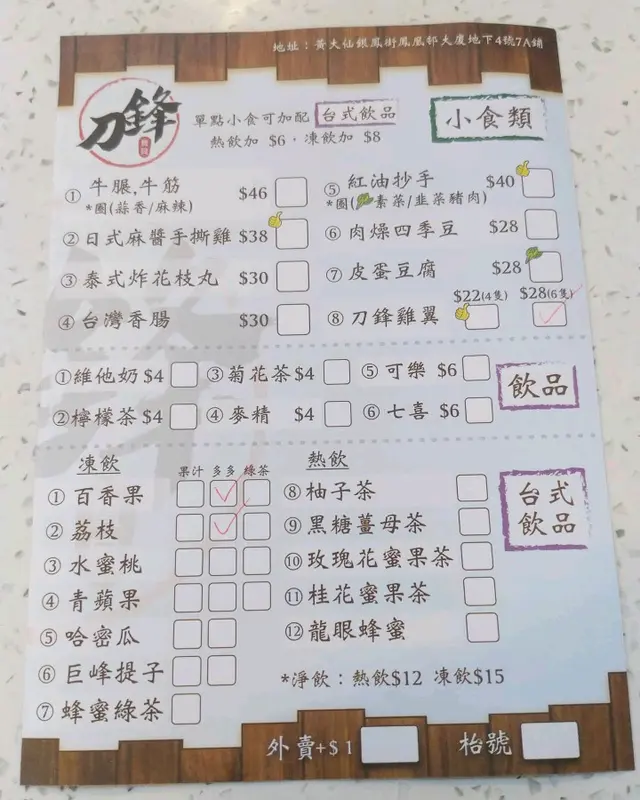 地址：黃大仙銀鳳街鳳凰邨大廈地下4號7A鋪
刀鋒
單點小食可加配 台式飲品
熱飲加 $6，凍飲加 $8
小食類
① 牛腒,牛筋 $46
*圈(蒜香/麻辣)
② 日式麻醬手撕雞 $38
③ 泰式炸花枝丸 $30
④ 台灣香腸 $30
⑤ 紅油抄手 $40
*圈(素菜/韭菜豬肉)
⑥ 肉燥四季豆 $28
⑦ 皮蛋豆腐 $28
$22(4隻) $28(6隻)
⑧ 刀鋒雞翼
①維他奶 $4
②檸檬茶 $4
③ 菊花茶 $4
④ 麥精 $4
⑤ 可樂 $6
⑥ 七喜 $6
飲品
凍飲
果汁 多多 綠茶
① 百香果
② 荔枝
③ 水蜜桃
④ 青蘋果
⑤ 哈密瓜
⑥ 巨峰提子
⑦ 蜂蜜綠茶
熱飲
⑧ 柚子茶
⑨ 黑糖薑母茶
⑩ 玫瑰花蜜果茶
⑪ 桂花蜜果茶
⑫ 龍眼蜂蜜
台式
飲品
*淨飲：熱飲$12 凍飲$15
外賣+$1
枱號